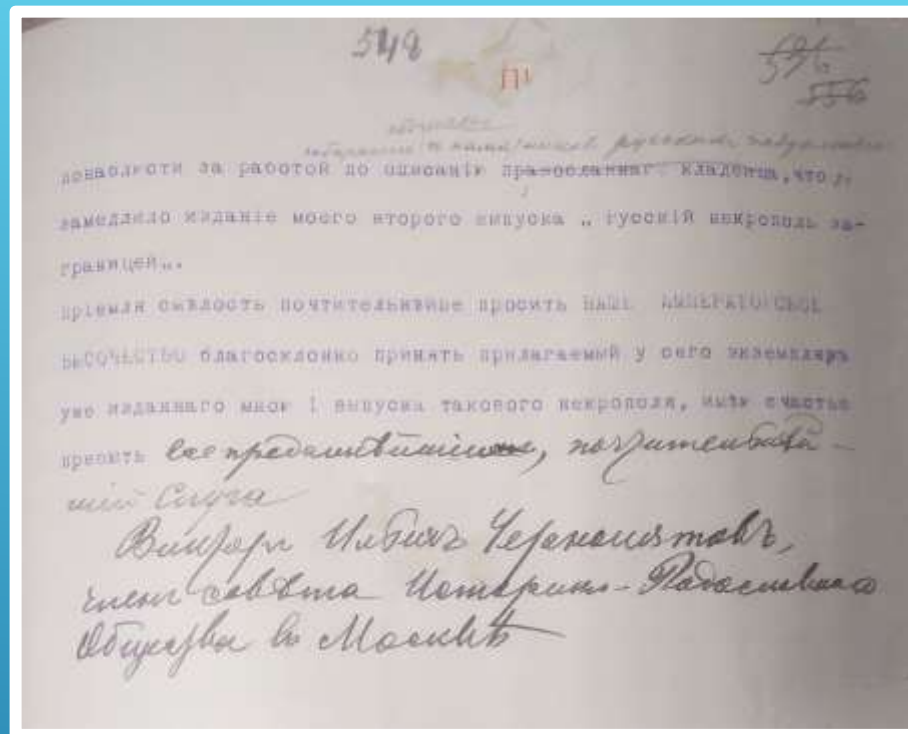 548
556
П1
за работой по описанію православнаг кладбища, что
замедлило изданіе моего второго выпуска „ Русскій некрополь за-
границей„.
пріемля смѣлость почтительнѣйше просить ВАШЕ ИМПЕРАТОРСКОЕ
ВЫСОЧЕСТВО благосклонно принять прилагаемый у сего экземпляръ
уже изданнаго мною 1 выпуска такового некрополя, имѣю счастье
всепреданнѣйшій, почтительнѣй-
шій Слуга
Викторъ Ильичъ Чернопятовъ,
членъ совѣта Историко-Родословнаго
Общества въ Москвѣ